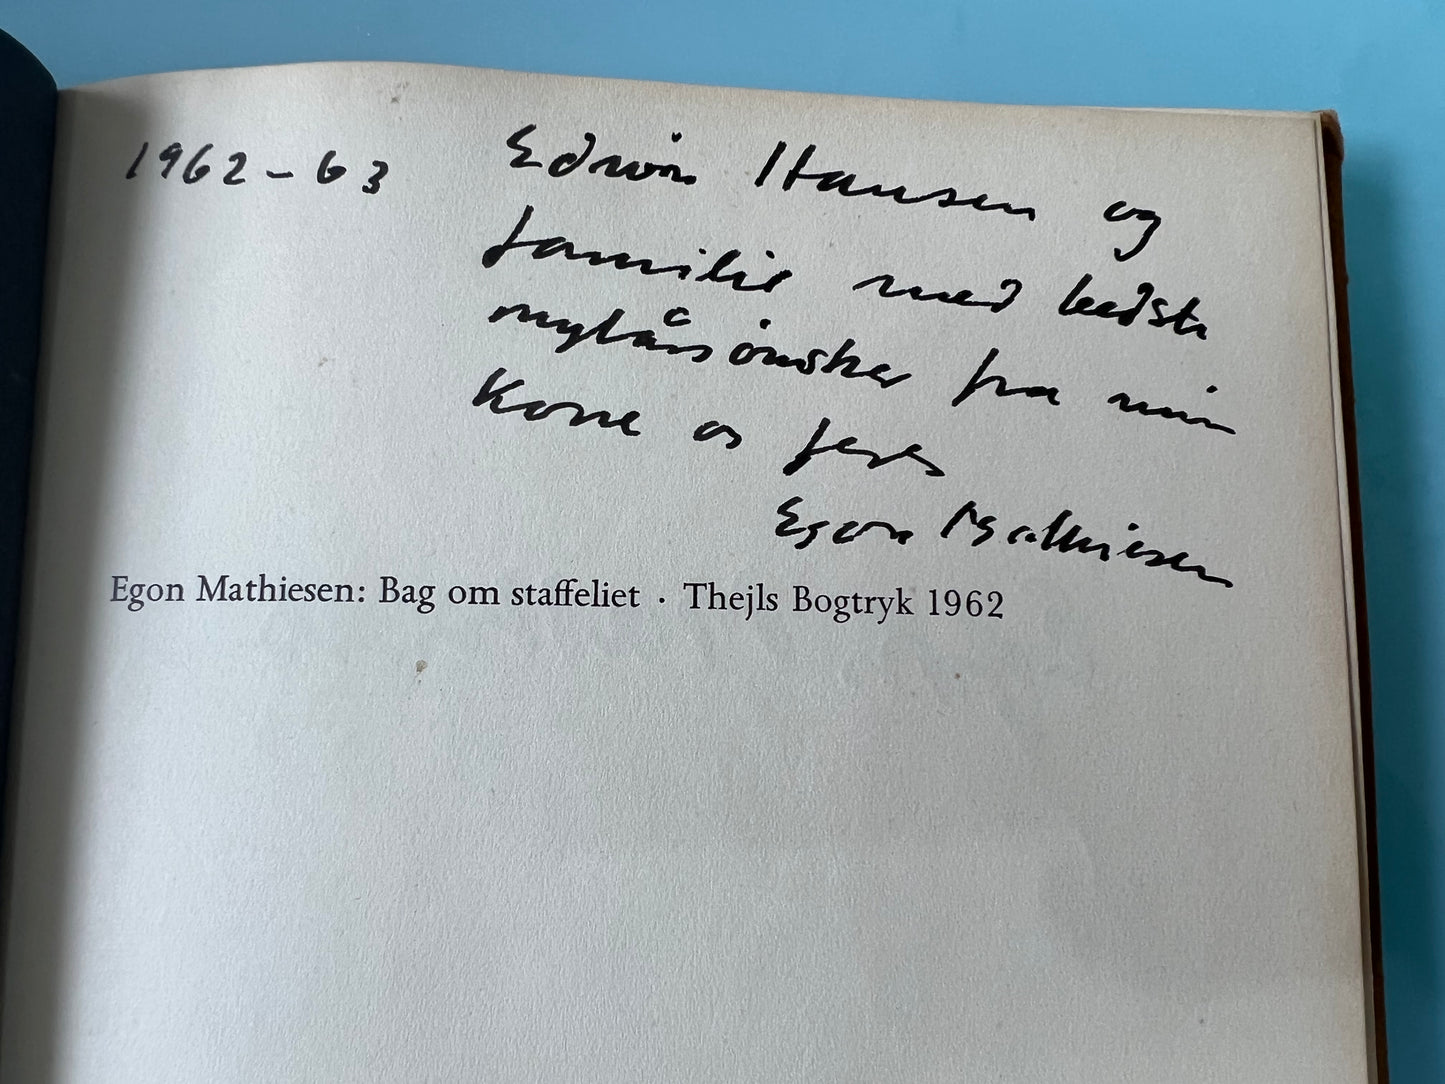 1962-63
Edwin Hansen og
familie med bedste
nytårsønsker fra min
Kone og
Egon Mathiesen
Egon Mathiesen: Bag om staffeliet · Thejls Bogtryk 1962